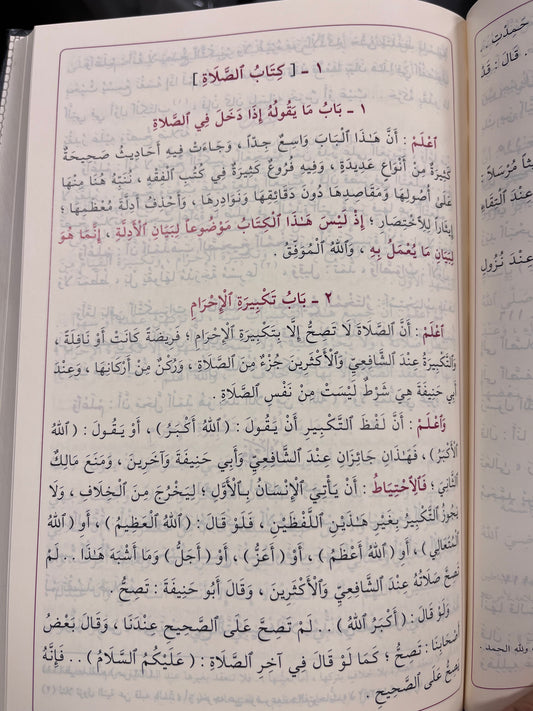 ١ ـ [ كِتَابُ ٱلصَّلَاةِ ]
١ ـ بَابُ مَا يَقُولُهُ إِذَا دَخَلَ فِي ٱلصَّلَاةِ
ٱعْلَمْ : أَنَّ هَـٰذَا ٱلْبَابَ وَاسِعٌ جِدّاً ، وَجَاءَتْ فِيهِ أَحَادِيثُ صَحِيحَةٌ
كَثِيرَةٌ مِنْ أَنْوَاعٍ عَدِيدَةٍ ، وَفِيهِ فُرُوعٌ كَثِيرَةٌ فِي كُتُبِ ٱلْفِقْهِ ، نُنَبِّهُ هُنَا مِنْهَا
عَلَىٰ أُصُولِهَا وَمَقَاصِدِهَا دُونَ دَقَائِقِهَا وَنَوَادِرِهَا ، وَأَحْذِفُ أَدِلَّةَ مُعْظَمِهَا ؛
إِيثَاراً لِلِٱخْتِصَارِ ؛ إِذْ لَيْسَ هَـٰذَا ٱلْكِتَابُ مَوْضُوعاً لِبَيَانِ ٱلْأَدِلَّةِ ، إِنَّمَا هُوَ
لِبَيَانِ مَا يُعْمَلُ بِهِ ، وَٱللهُ ٱلْمُوَفِّقُ .
٢ ـ بَابُ تَكْبِيرَةِ ٱلْإِحْرَامِ
ٱعْلَمْ : أَنَّ ٱلصَّلَاةَ لَا تَصِحُّ إِلَّا بِتَكْبِيرَةِ ٱلْإِحْرَامِ ؛ فَرِيضَةً كَانَتْ أَوْ نَافِلَةً ،
وَٱلتَّكْبِيرَةُ عِنْدَ ٱلشَّافِعِيِّ وَٱلْأَكْثَرِينَ جُزْءٌ مِنَ ٱلصَّلَاةِ ، وَرُكْنٌ مِنْ أَرْكَانِهَا ، وَعِنْدَ
أَبِي حَنِيفَةَ هِيَ شَرْطٌ لَيْسَتْ مِنْ نَفْسِ ٱلصَّلَاةِ .
وَٱعْلَمْ : أَنَّ لَفْظَ ٱلتَّكْبِيرِ أَنْ يَقُولَ : ( ٱللهُ أَكْبَرُ ) ، أَوْ يَقُولَ : ( ٱللهُ
ٱلْأَكْبَرُ ) ، فَهَـٰذَانِ جَائِزَانِ عِنْدَ ٱلشَّافِعِيِّ وَأَبِي حَنِيفَةَ وَآخَرِينَ ، وَمَنَعَ مَالِكٌ
ٱلثَّانِيَ ؛ فَٱلِٱحْتِيَاطُ : أَنْ يَأْتِيَ ٱلْإِنْسَانُ بِٱلْأَوَّلِ ؛ لِيَخْرُجَ مِنَ ٱلْخِلَافِ ، وَلَا
يَجُوزُ ٱلتَّكْبِيرُ بِغَيْرِ هَـٰذَيْنِ ٱللَّفْظَيْنِ ، فَلَوْ قَالَ : ( ٱللهُ ٱلْعَظِيمُ ) ، أَوِ ( ٱللهُ
ٱلْمُتَعَالِي ) ، أَوِ ( ٱللهُ أَعْظَمُ ) ، أَوْ ( أَعَزُّ ) ، أَوْ ( أَجَلُّ ) وَمَا أَشْبَهَ هَـٰذَا . . لَمْ
تَصِحَّ صَلَاتُهُ عِنْدَ ٱلشَّافِعِيِّ وَٱلْأَكْثَرِينَ ، وَقَالَ أَبُو حَنِيفَةَ : تَصِحُّ .
وَلَوْ قَالَ : ( أَكْبَرُ ٱللهُ ) . . لَمْ تَصِحَّ عَلَى ٱلصَّحِيحِ عِنْدَنَا ، وَقَالَ بَعْضُ
أَصْحَابِنَا : تَصِحُّ ؛ كَمَا لَوْ قَالَ فِي آخِرِ ٱلصَّلَاةِ : ( عَلَيْكُمُ ٱلسَّلَامُ ) . . فَإِنَّهُ
يَصِحُّ عَلَى ٱلصَّحِيحِ .
حَمِدْتِ . .
. قَالَ : قَدْ
مُرْسَلاً :
عِنْدَ ٱلْتِقَاءِ
عِنْدَ نُزُولِ
ولله الحمد .